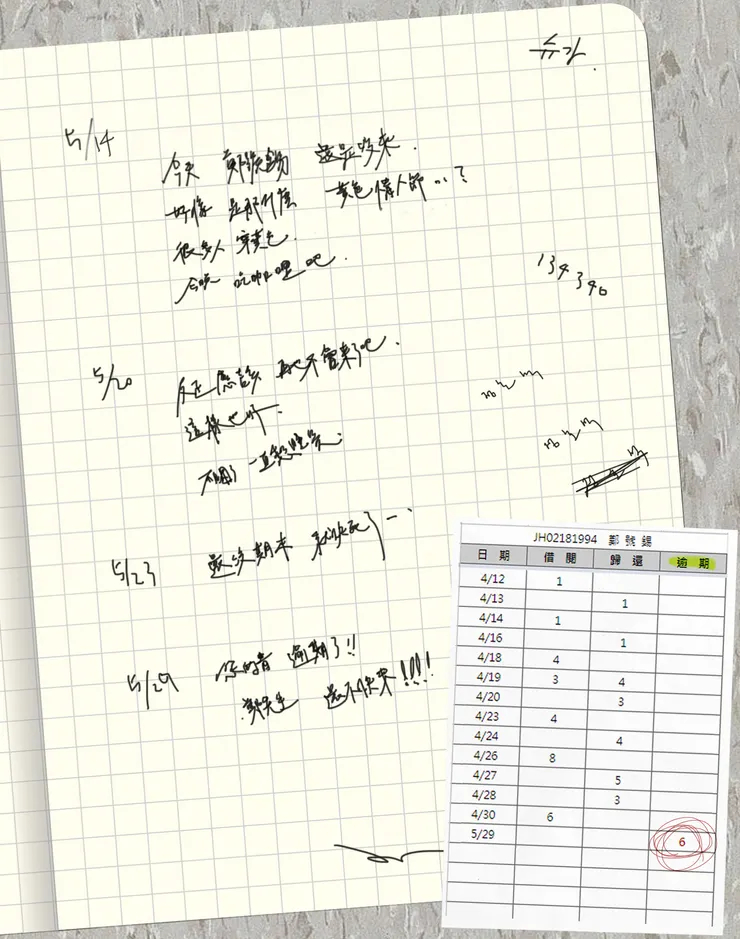 5/14
今天 鄭號錫 還是沒來.
好像 是那什麼 黃色情人節…?
很多人 穿黃色.
今晚 吃咖哩吧.
134340
5/20
反正應該 再也不會來了吧.
這樣也好.
不用
一直
5/23
最後期末
5/29
你的書 逾期了!!
鄭先生 還不快來!!!!
JH02181994 鄭號錫
日期 借閱 歸還 逾期
4/12 1
4/13 1
4/14 1
4/16 1
4/18 4
4/19 3 4
4/20 3
4/23 4
4/24 4
4/26 8
4/27 5
4/28 3
4/30 6
5/29 6